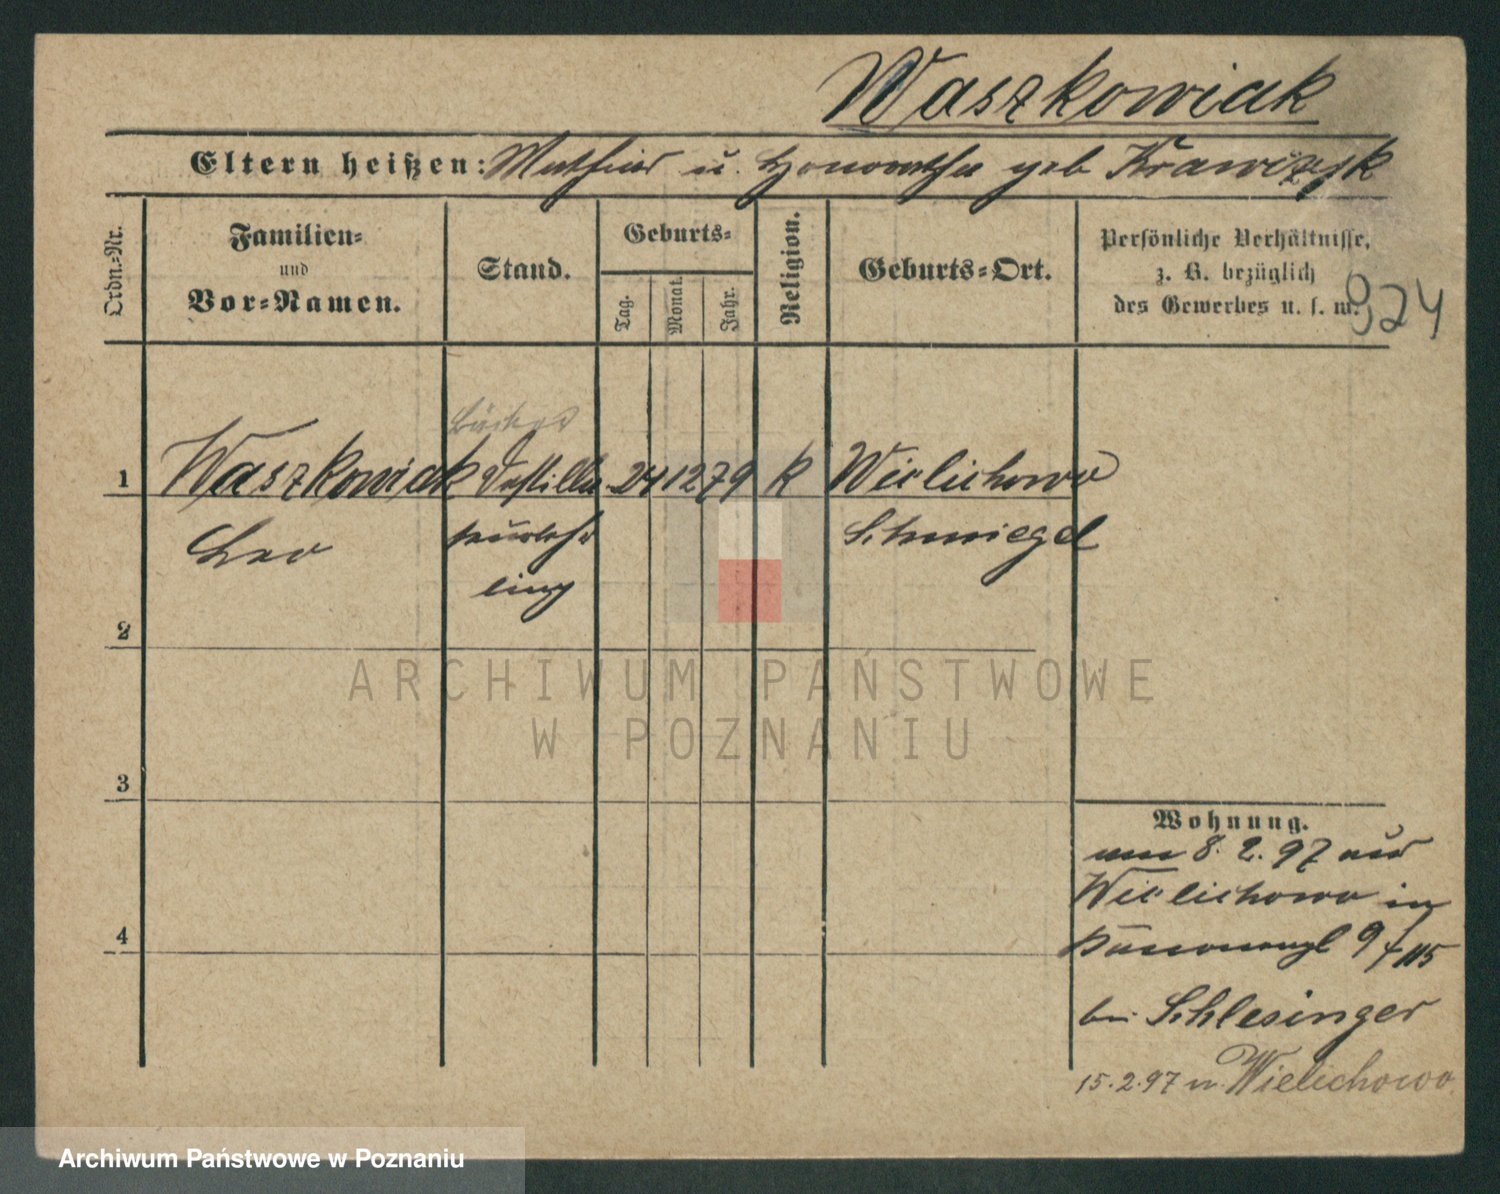 Waszkowiak
Eltern heißen: Mathias u. Honoratha geb Krawczyk
Ordn.-Nr.
Familien-
und
Vor-Namen.
Stand.
Geburts-
Tag.
Monat.
Jahr.
Religion.
Geburts-Ort.
Persönliche Verhältnisse,
z. B. bezüglich
des Gewerbes u. s. w.
924
Bäcker
1 Waszkowiak Destilla 24 12 79 k Wielichowo
Leo teurlehr Schmiegel
ling
2
3
4
Wohnung.
am 8. 2. 97 aus
Wielichowo in
9/115
bei Schlesinger
15.2.97 n. Wielichowo
ARCHIWUM PAŃSTWOWE
W POZNANIU
Archiwum Państwowe w Poznaniu